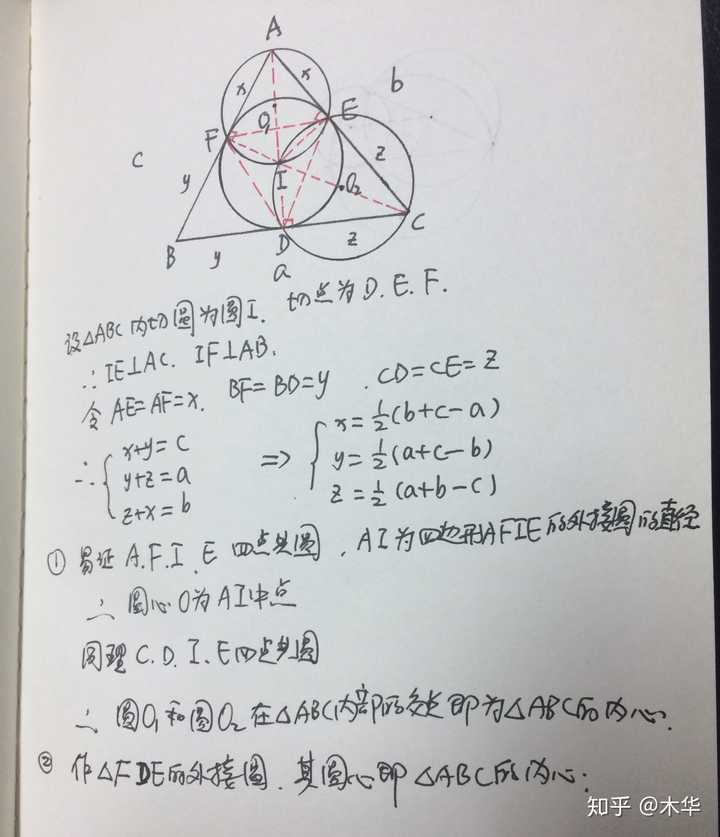 A
x
x
b
E
F
O₁
c
z
y
I
O₂
C
B
y
D
z
a
设△ABC内切圆为圆I. 切点为D.E.F.
∴IE⊥AC. IF⊥AB.
令AE=AF=x. BF=BD=y. CD=CE=z
∴{x+y=c y+z=a z+x=b => {x=½(b+c-a) y=½(a+c-b) z=½(a+b-c)
① 易证A.F.I.E四点共圆,AI为四边形AFIE的外接圆的直径
∴ 圆心O为AI中点
同理C.D.I.E四点共圆
∴ 圆O₁和圆O₂在△ABC内部的交点即为△ABC的内心.
② 作△FDE的外接圆.其圆心即△ABC的内心.
知乎 @木华